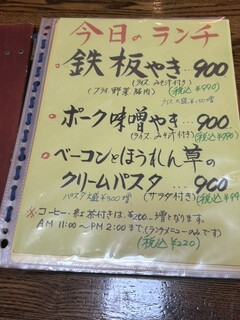 今日のランチ
鉄板やき…900
(ライス、みそ汁付き)
(フライ、野菜、豚肉) (税込¥990)
ライス大盛¥100増
ポーク味噌やき…900
(ライス、みそ汁付き) (税込¥990)
ベーコンとほうれん草の
クリームパスタ…900
パスタ大盛¥300増 (サラダ付き) (税込¥99
※コーヒー、紅茶付きは、¥200-増となります。
AM 11:00〜PM 2:00まで(ランチメニューのみです)
(税込¥220)